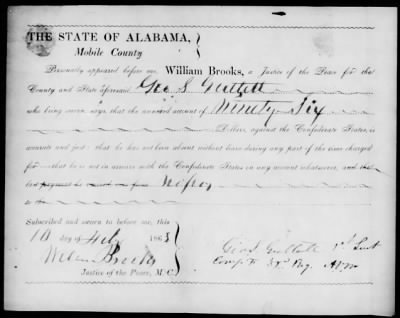 THE STATE OF ALABAMA,
Mobile County
Personally appeared before me, William Brooks, a Justice of the Peace for that
County and State aforesaid Geo S
who being sworn says, that the annexed account of Ninety Six
Dollars, against the Confederate States, is
accurate and just: that he has not been absent without leave during any part of the time charged
for— that he is not in arrears with the Confederate States on any account whatsoever, and
Subscribed and sworn to before me, this
10 day of 1863
Wm Brooks
Justice of the Peace, M. C.
Geo S 1st Lieut
Comp F Reg